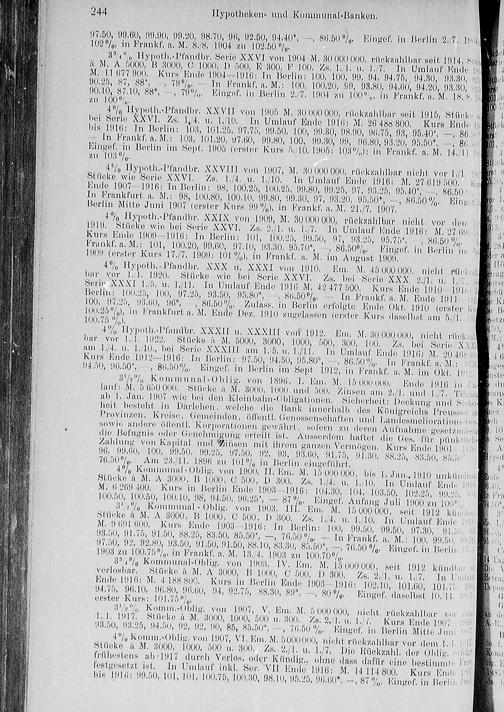 244 Hypotheken- und Kommunal-Banken.
97.50, 99.60, 99.90, 99.20, 98.70, 96, 92.50, 94.40*, —, 86.50 %. Eingef. in Berlin 2./7.
102 %, in Frankf. a. M. 8./8. 1904 zu 102.50 %.
3¾ % Hypoth.-Pfandbr. Serie XXVI von 1904 M. 30 000 000, rückzahlbar seit 1914,
à M. A 5000, B 3000, C 1000, D 500, E 300, F 100. Zs. 1./1. u. 1./7. In Umlauf Ende
M. 11 677 900. Kurs Ende 1904—1916: In Berlin: 100, 100, 99, 94, 94.75, 94.30, 93.30,
90.25, 87, 88*, —, 79 %. — In Frankf. a. M.: 100, 100.20, 99, 93.80, 94.60, 94.20, 93.30,
90.10, 87.10, 88*, —, 79 %. Eingef. in Berlin 2./7. 1904 zu 100 %, in Frankf. a. M. 18./8.
zu 100 %.
4 % Hypoth.-Pfandbr. XXVII von 1905 M. 30 000 000, rückzahlbar seit 1915,
bei Serie XXVI. Zs. 1./4. u. 1./10. In Umlauf Ende 1916 M. 26 488 800. Kurs
bis 1916: In Berlin: 103, 101.25, 97.75, 99.50, 100, 99.30, 98.90, 96.75, 93, 95.40*, —,
— In Frankf. a. M.: 103, 101.20, 97.60, 99.80, 100, 99.30, 99, 96.80, 93.20, 95.50*, —,
Eingef. in Berlin im Sept. 1905 (erster Kurs 5./10. 1905: 103 %); in Frankf. a. M. 14./11
zu 103 %.
4 % Hypoth.-Pfandbr. XXVIII von 1907, M. 30 000 000, rückzahlbar nicht vor 1./1.
Stücke wie Serie XXVI. Zs. 1./4. u. 1./10. In Umlauf Ende 1916: M. 27 619 500.
Ende 1907—1916: In Berlin: 98, 100.25, 100.25, 99.80, 99.25, 97, 93.25, 95.40*, —, 86.50
In Frankfurt a. M.: 98, 100.80, 100.10, 99.80, 99.30, 97, 93.20, 95.50*, —, 86.50 %.
Berlin Mitte Juni 1907 (erster Kurs 99 %), in Frankf. a. M. 21./7. 1907.
4 % Hypoth.-Pfandbr. XXIX von 1909, M. 30 000 000, rückzahlbar nicht vor den
1919. Stücke wie bei Serie XXVI. Zs. 2./1. u. 1./7. In Umlauf Ende 1916: M. 27
Kurs Ende 1909—1916: In Berlin: 101, 100.25, 99.50, 97, 93.25, 95.75*, —, 86.50 %.
Frankf. a. M.: 101, 100.20, 99.60, 97.10, 93.30, 95.70*, —, 86.50 %. Eingef. in Berlin
1909 (erster Kurs 17./7. 1909: 101 %), in Frankf. a. M. im August 1909.
4 % Hypoth.-Pfandbr. XXX u. XXXI von 1910. Em. M. 45 000 000, nicht
bar vor 1./1. 1920. Stücke wie bei Serie XXVI. Zs. bei Serie XXX 2./1. u. 1./7.,
Serie XXXI 1./5. u. 1./11. In Umlauf Ende 1916 M. 42 477 500. Kurs Ende 1910
Berlin: 100.25, 100, 97.25, 93.50, 95.80*, —, 86.50 %. — In Frankf. a. M. Ende 1911
100, 97.25, 93.60, 96*, —, 86.50 %. Zulass. in Berlin erfolgte Ende Okt. 1910 (erster
100.25 %), in Frankfurt a. M. Ende Dez. 1910 zugelassen (erster Kurs daselbst am 5./1.
100.75 %).
4 % Hypoth.-Pfandbr. XXXII u. XXXIII von 1912. Em. M. 30 000 000, nicht
bar vor 1./1. 1922. Stücke à M. 5000, 3000, 1000, 500, 300, 100. Zs. bei Serie
am 1./4. u. 1./10., bei Serie XXXIII am 1./5. u. 1./11. In Umlauf Ende 1916: M. 20
Kurs Ende 1912—1916: In Berlin: 97.50, 94.50, 95.80*, —, 86.50 %. In Frankf. a. M.:
94.50, 96.50*, —, 86.50 %. Eingef. in Berlin im Sept. 1912, in Frankf. a. M. im Okt.
3½ % Kommunal-Oblig. von 1896, I. Em. M. 15 000 000. Ende 1916 in
lauf: M. 5 650 000. Stücke à M. 3000, 1000 und 500. Zinsen am 2./1. und 1./7.
ab 1. Jan. 1907 wie bei den Kleinbahn-Obligationen. Sicherheit: Deckung und
heit besteht in Darlehen, welche die Bank innerhalb des Königreichs Preussen
Provinzen, Kreise, Gemeinden, öffentl. Genossenschaften und Landesmeliorations
sowie andere öffentl. Korporationen gewährt, sofern zu deren Aufnahme
die Befugnis oder Genehmigung erteilt ist. Ausserdem haftet die Ges. für
Zahlung von Kapital und Zinsen mit ihrem ganzen Vermögen. Kurs Ende 1901
96, 99.60, 100, 99.50, 99.25, 97.50, 92, 93, 93.60, 91.75, 91.30, 88.25, 83.50,
76.50 %. Am 23./11. 1896 zu 101 % in Berlin eingeführt.
4 % Kommunal-Oblig. von 1900, II. Em. M. 15 000 000, bis 1. Jan. 1910 unkündbar
Stücke à M. A 3000, B 1000, C 500, D 300. Zs. 1./4. u. 1./10. In Umlauf Ende
M. 6 269 400. Kurs in Berlin Ende 1903—1916: 104.30, 104, 103.50, 102.25,
100.50, 100.50, 100.10, 98, 94.50, 96.25*, — 87 %. Eingef. Anfang Juli 1900 zu 100
3½ % Kommunal-Oblig. von 1903, III. Em. M. 15 000 000, seit 1912
Stücke à M. A 3000, B 1000, C 500, D 300. Zs. 1./4. u. 1./10. In Umlauf Ende
M. 9 691 600. Kurs Ende 1903—1916: In Berlin: 100, 99.50, 99.50, 97.30,
93.50, 91.75, 91.50, 88.25, 83.50, 85.50*, —, 76.50 %. — In Frankf. a. M.: 100, 99.50,
97.50, 92, 92.80, 93.50, 91.50, 91.50, 88.10, 83.30, 85.50*, —, 76.50 %. Eingef. in Berlin
1903 zu 100.75 %, in Frankf. a. M. 13./4. 1903 zu 100.70 %.
3¾ % Kommunal-Oblig. von 1903, IV. Em. M. 15 000 000, seit 1912 kündbar
verlosbar. Stücke à M. A 3000, B 1000, C 500, D 300. Zs. 2./1. u. 1./7. In
Ende 1916: M. 4 188 800. Kurs in Berlin Ende 1903—1916: 102.10, 101.60, 101.
94.75, 96.10, 96.80, 96.60, 94, 92.75, 88.30, 89*, —, 80 %. Eingef. daselbst 10./11.
erster Kurs: 101.75 %.
3½ % Komm.-Oblig. von 1907, V. Em. M. 5 000 000, nicht rückzahlbar vor
1./1. 1917. Stücke à M. 3000, 1000, 500 u. 300. Zs. 2./1. u. 1./7. Kurs Ende 1907
93.50, 93.25, 94.50, 92, 92, 90, 85, 85.50*, —, 76.50 %. Eingef. in Berlin Mitte Juni
4 % Komm.-Oblig. von 1907, VI. Em. M. 5 000 000, nicht rückzahlbar vor dem 1.
Stücke à M. 3000, 1000, 500 u. 300. Zs. 2./1. u. 1./7. Die Rückzahl. der Oblig.
frühestens ab 1917 durch Verlos. oder Kündig., ohne dass dafür eine bestimmte
festgesetzt ist. In Umlauf inkl. Ser. VII Ende 1916: M. 14 114 800. Kurs Ende
bis 1916: 99.50, 101, 101, 100.75, 100.30, 98.10, 95.25, 96.60*, —, 87 %. Eingef. in Berlin